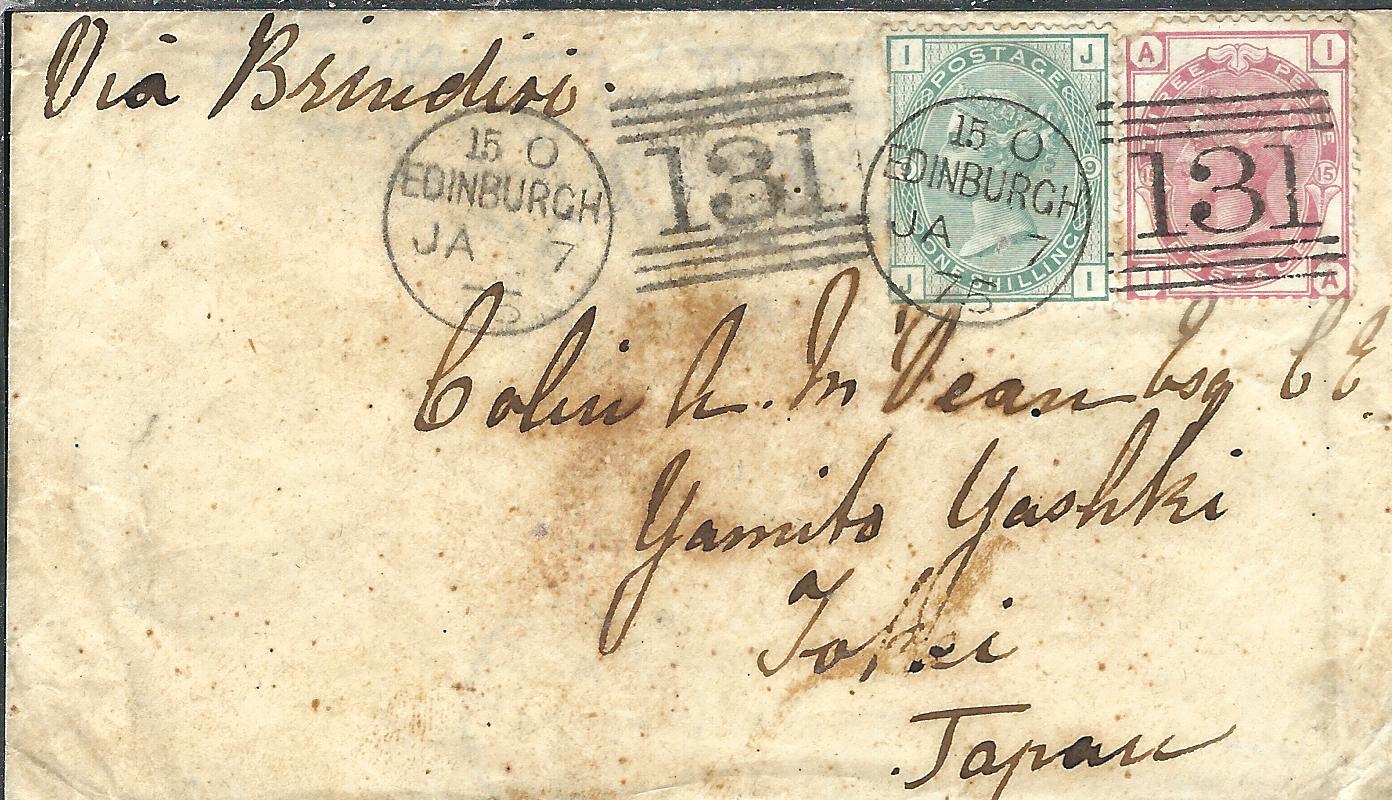 Via Brindisi.
15 O
EDINBURGH
JA 7
75
131
15 O
EDINBURGH
JA 7
75
131
I J
POSTAGE
ONE SHILLING
J I
A I
THREE PENCE
15
POSTAGE
I A
Colin A. McVean Esq C E
Yamito Yashki
Tokei
Japan